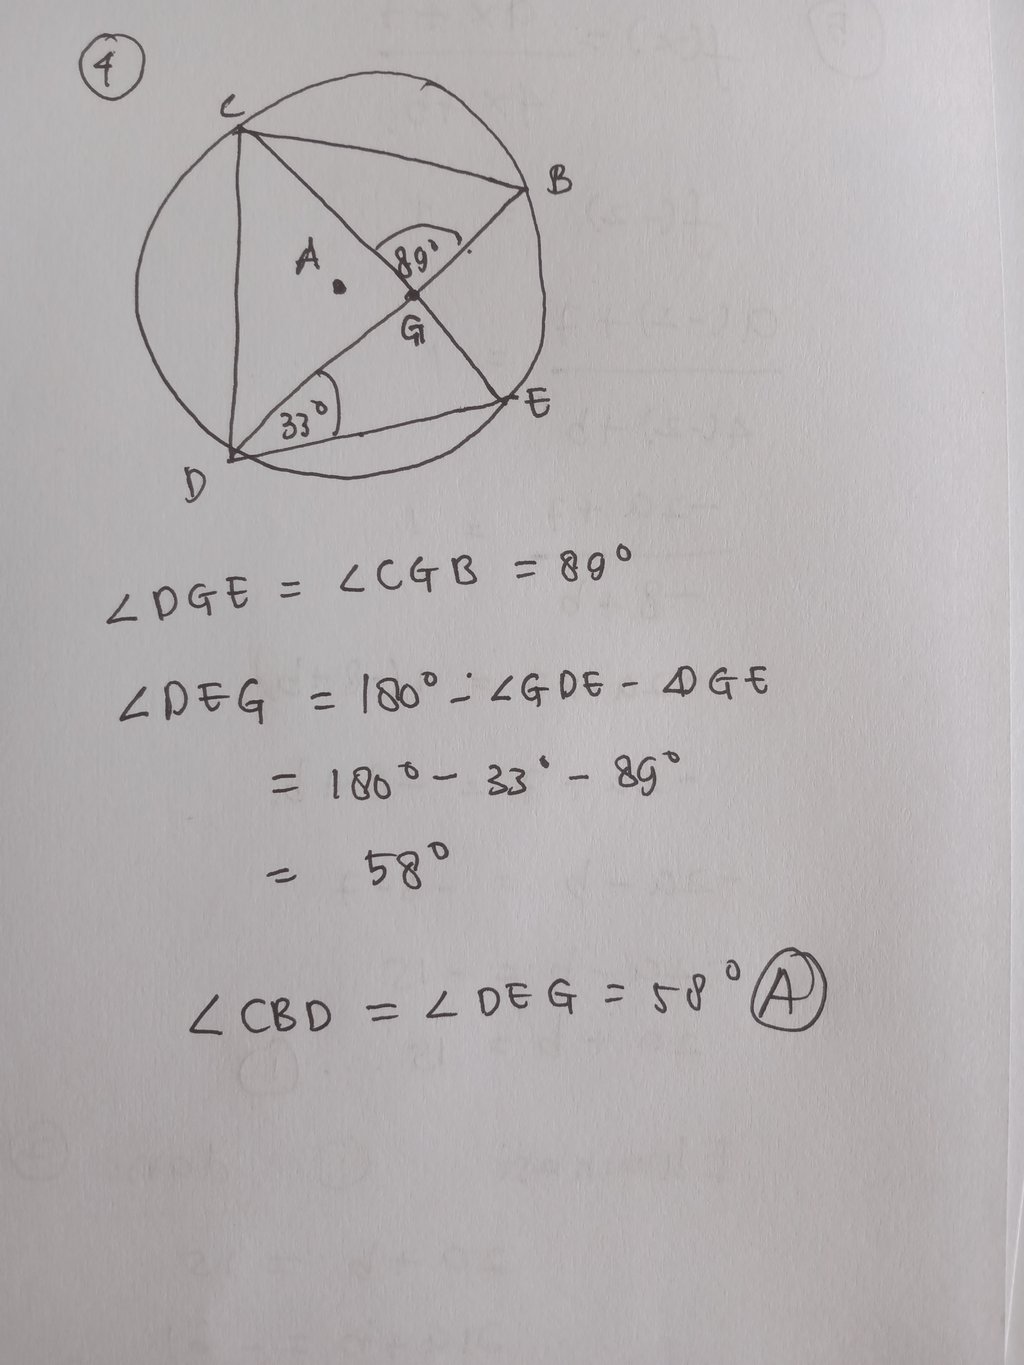 4
C
B
A
89°
G
33°
E
D
∠DGE = ∠CGB = 89°
∠DEG = 180° - ∠GDE - ∠DGE
= 180° - 33° - 89°
= 58°
∠CBD = ∠DEG = 58° A